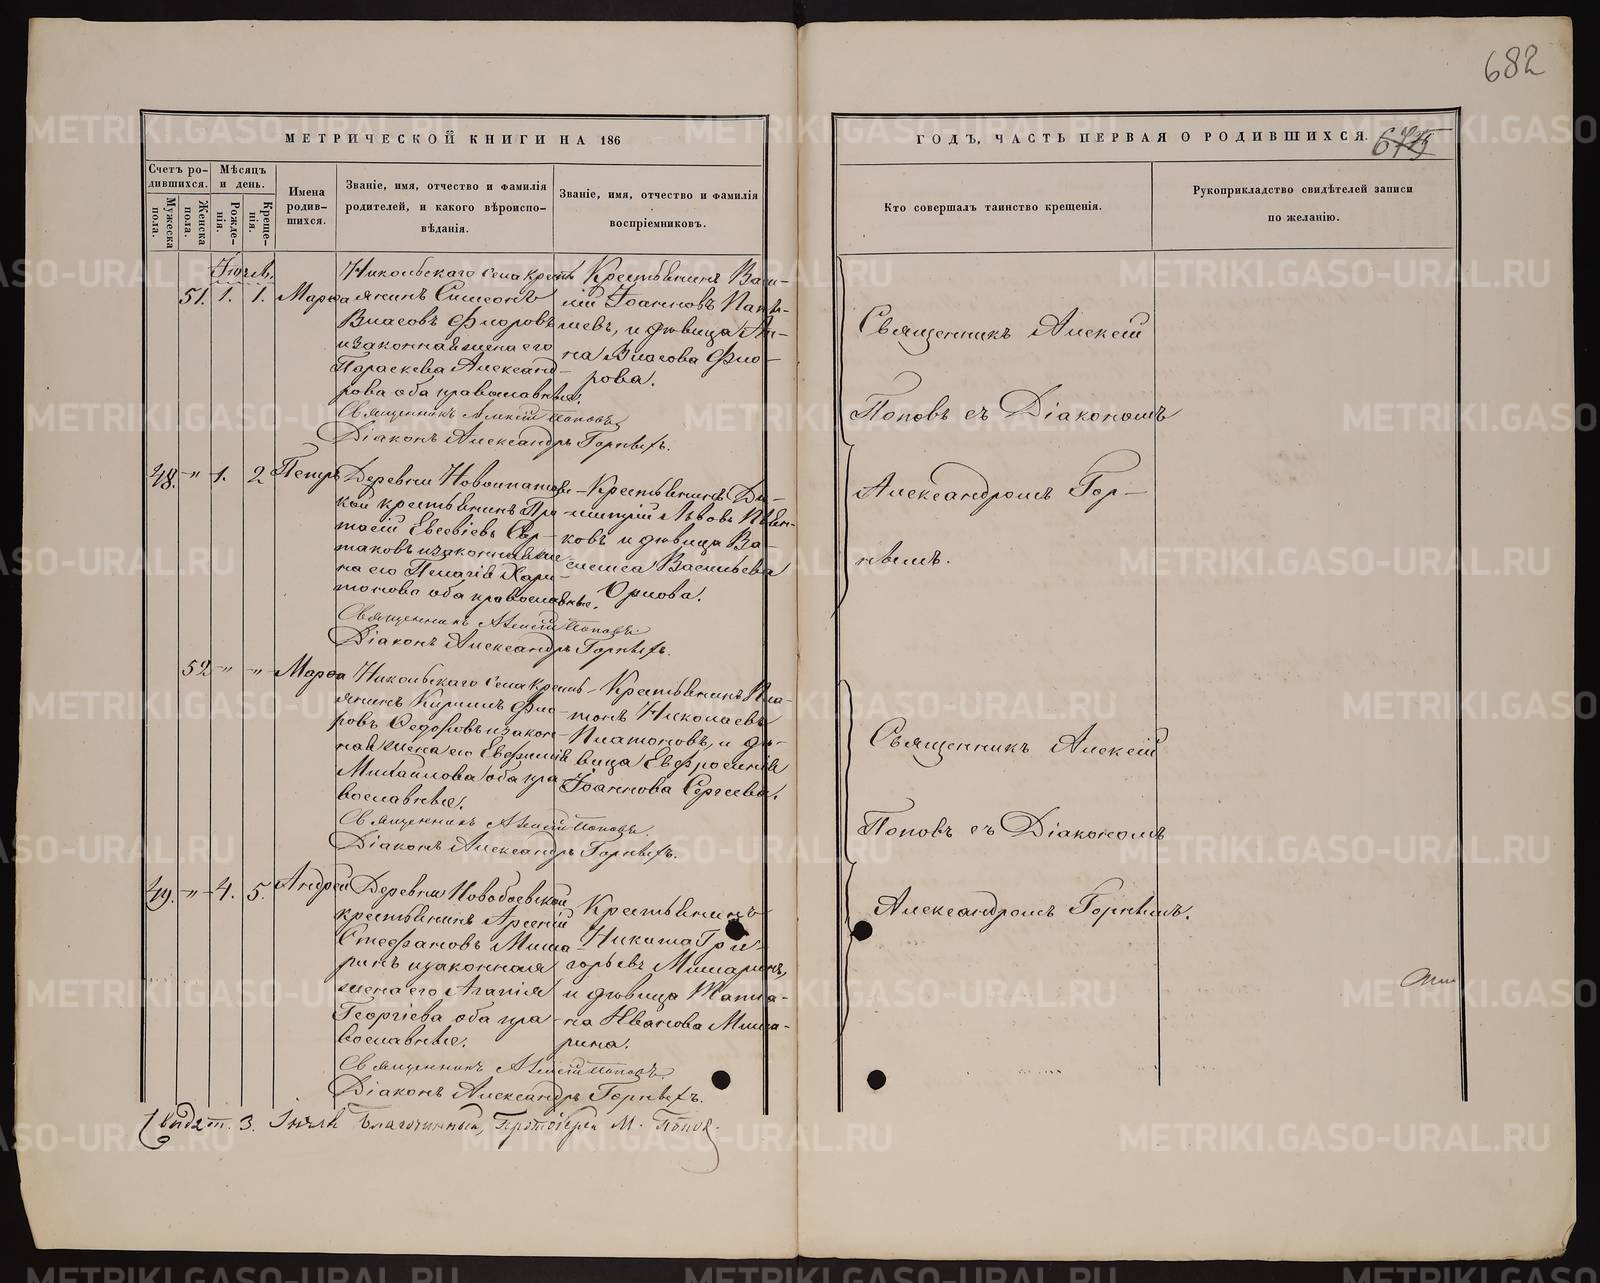 682
МЕТРИЧЕСКОЙ КНИГИ НА 186
ГОДЪ, ЧАСТЬ ПЕРВАЯ О РОДИВШИХСЯ.
Счетъ ро-
дившихся.
Мѣсяцъ
и день.
Мужеска
пола.
Женска
пола.
Рожде-
нія.
Креще-
нія.
Имена
родив-
шихся.
Званіе, имя, отчество и фамилія
родителей, и какого вѣроиспо-
вѣданія.
Званіе, имя, отчество и фамилія
воспріемниковъ.
Кто совершалъ таинство крещенія.
Рукоприкладство свидѣтелей записи
по желанію.
Іюль.
51. 1. 1. Марѳа
Никольскаго села кресть
янинъ Симеонъ
Власовъ Флоровъ
и законная жена его
Параскева Александ-
рова оба православные.
Священникъ Алексій Поповъ
Діаконъ Александръ Горныхъ.
Крестьянинъ Васи-
лій Іоанновъ
и дѣвица Ан-
на Власова Фло-
рова.
Священникъ Алексій
Поповъ съ Діакономъ
Александромъ Гор-
нымъ.
48. -"- 1. 2 Петръ
Деревни
крестьянинъ
Евсевіевъ
и законная же
на его Пелагія Хари-
тонова оба православные.
Священникъ Алексій Поповъ
Діаконъ Александръ Горныхъ.
Крестьянинъ Ди-
митрій Львовъ
ковъ и дѣвица Ва-
Васильева
Орлова.
52 -"- -"- Марѳа
Никольскаго села кресть-
янинъ Кириллъ Фло-
ровъ Ѳедоровъ и закон-
ная жена его Евфимія
Михайлова оба пра
вославные.
Священникъ Алексій Поповъ.
Діаконъ Александръ Горныхъ.
Крестьянинъ Пла-
тонъ Николаевъ
Платоновъ, и дѣ-
вица Евфросинія
Іоаннова Сергеева.
Священникъ Алексій
Поповъ съ Діакономъ
Александромъ Горнымъ.
49. -"- 4. 5. Андрей
Деревни
крестьянинъ Арсеній
Стефановъ Миша
ринъ и законная
жена его Агапія
Георгіева оба пра
вославные.
Священникъ Алексій Поповъ.
Діаконъ Александръ Горныхъ.
Крестьянинъ
Никита Гри-
горьевъ Мишаринъ,
и дѣвица Татіа-
на Иванова Миша-
рина.
3. Благочинный, Протоіерей М. Поповъ.
METRIKI.GASO-URAL.RU